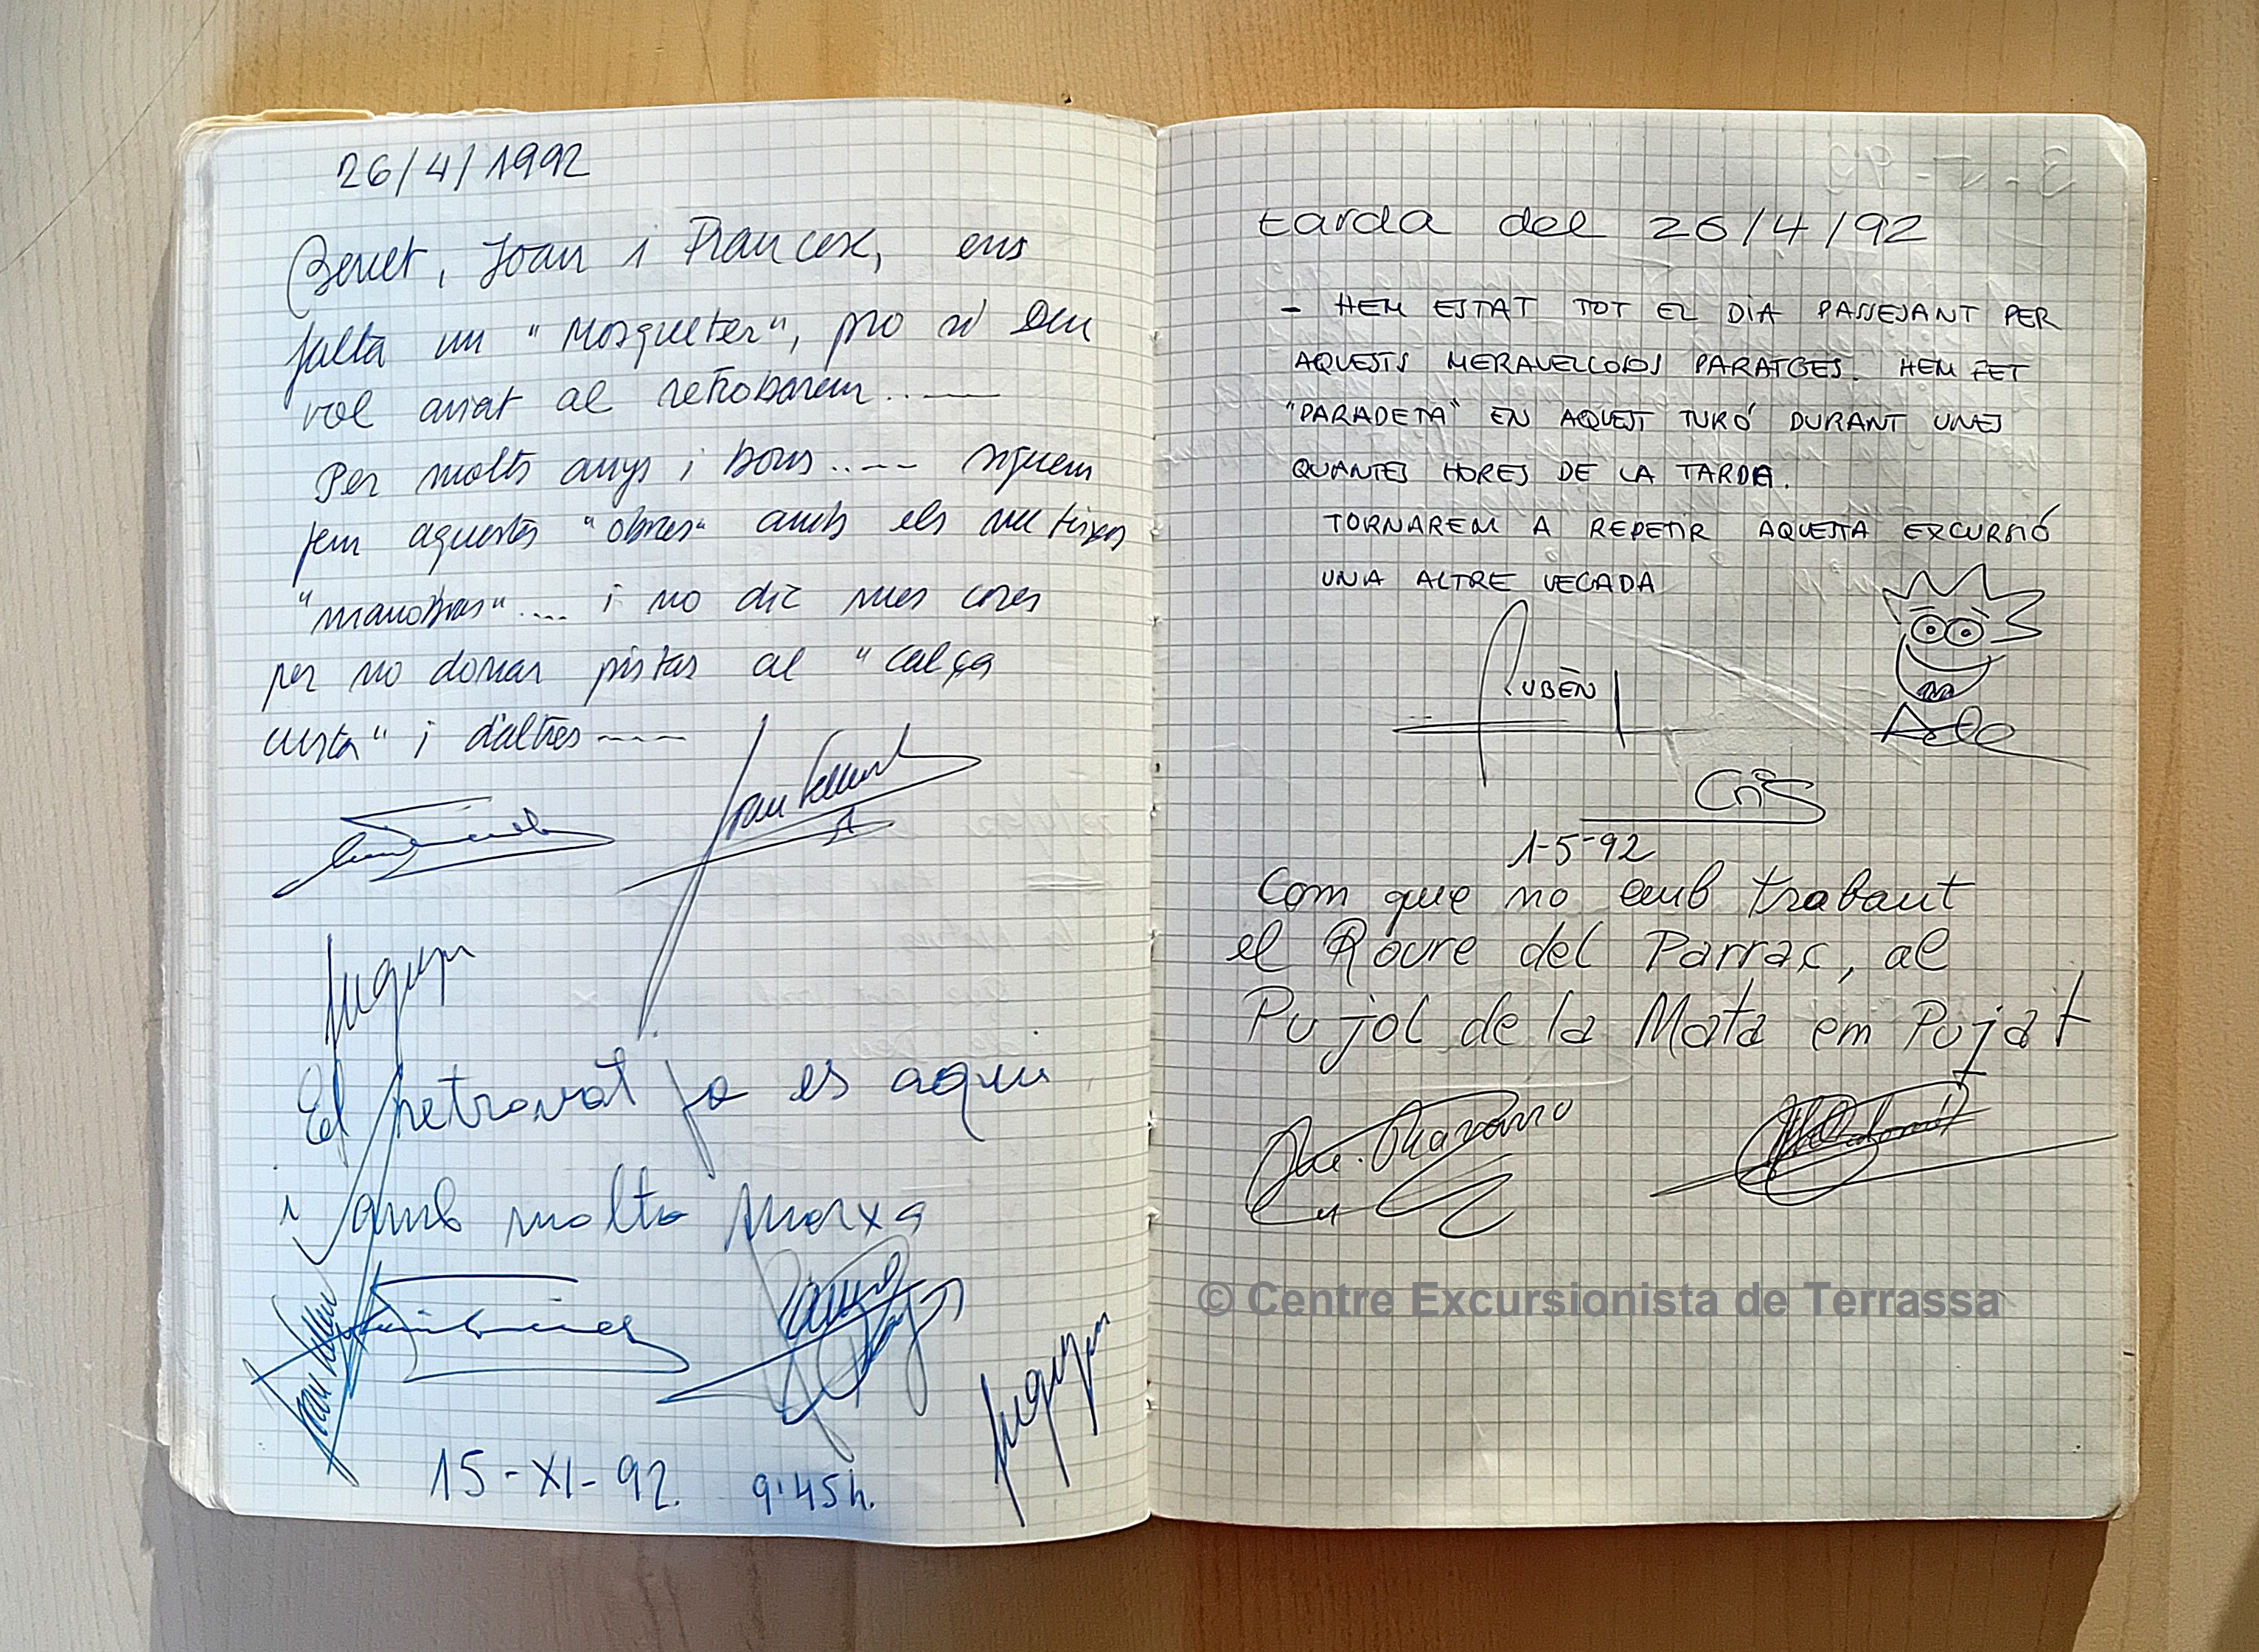 26/4/1992
Benet, Joan i Francesc, ens
falta un "Mosqueter", pro si Deu
vol aviat al retrobarem.....
Per molts anys i bons..... siguem
fem aquestes "obres" amb els mateixos
"manobras".... i no dic mes coses
per no donar pistas al "calça
curta" i d'altres----
El retrovat ja es aqui
i amb molta marxa
15-XI-92. 9'45h.
tarda del 26/4/92
- HEM ESTAT TOT EL DIA PASSEJANT PER
AQUESTS MERAVELLOSOS PARATGES. HEM FET
"PARADETA" EN AQUEST TURÓ DURANT UNES
QUANTES HORES DE LA TARDA.
TORNAREM A REPETIR AQUESTA EXCURSIÓ
UNA ALTRE VEGADA
RUBÈN
Cris
1-5-92
Com que no emb trabaut
el Roure del Parrac, al
Pujol de la Mata em Pujat
© Centre Excursionista de Terrassa